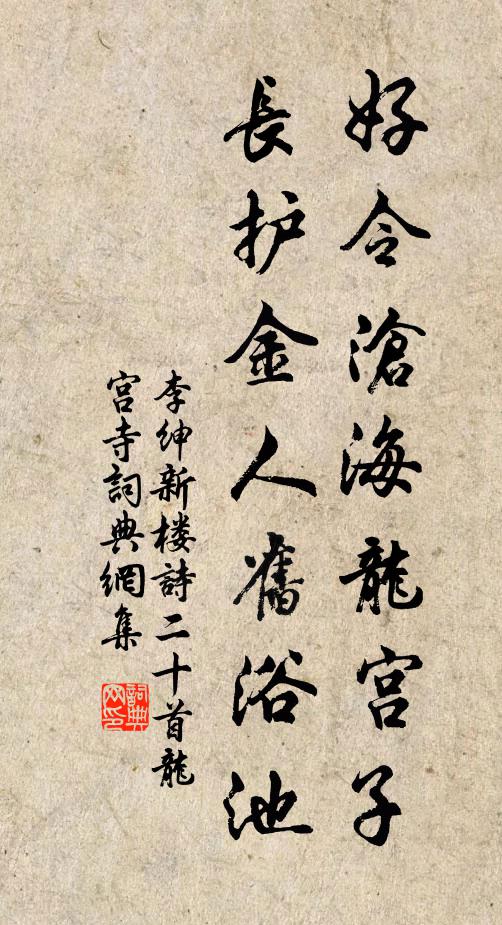 好令滄海龍宮子
長护金人舊浴池
李紳新楼詩二十首龍
宮寺詞典網集
詞典
网印